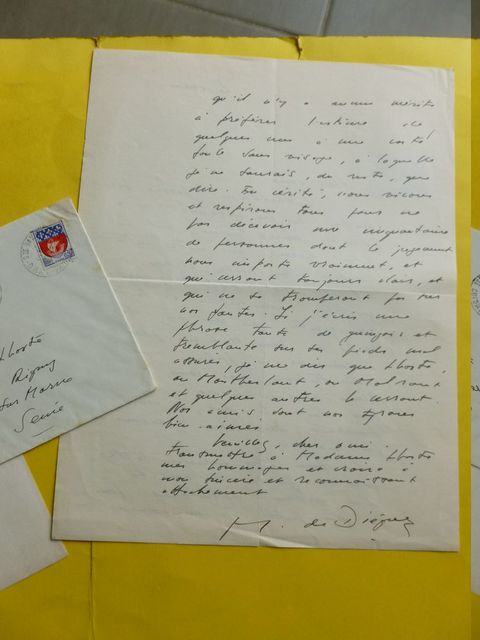 qu'il n'y a aucun mérite
à préférer l'estime de
quelques uns à une vaste
foule sans visage, à laquelle
je ne saurais, du reste, que
dire. En vérité, nous vivons
et respirons tous pour ne
pas décevoir une cinquantaine
de personnes dont le jugement
nous importe vraiment, et
qui verront toujours clair, et
qui ne se tromperont pas sur
nos fautes. Si j'écris une
phrase toute de guingois et
tremblante sur ses pieds mal
assurés, je me dis que Lhoste,
ou Montherlant, ou Malraux
et quelques autres le verront
Nos amis sont nos tyrans
bien-aimés.
Veuillez, cher ami,
transmettre à Madame Lhoste
mes hommages et croire à
mon sincère et reconnaissant
attachement
M. de Diéguez
Lhoste
Sur Marne
Seine